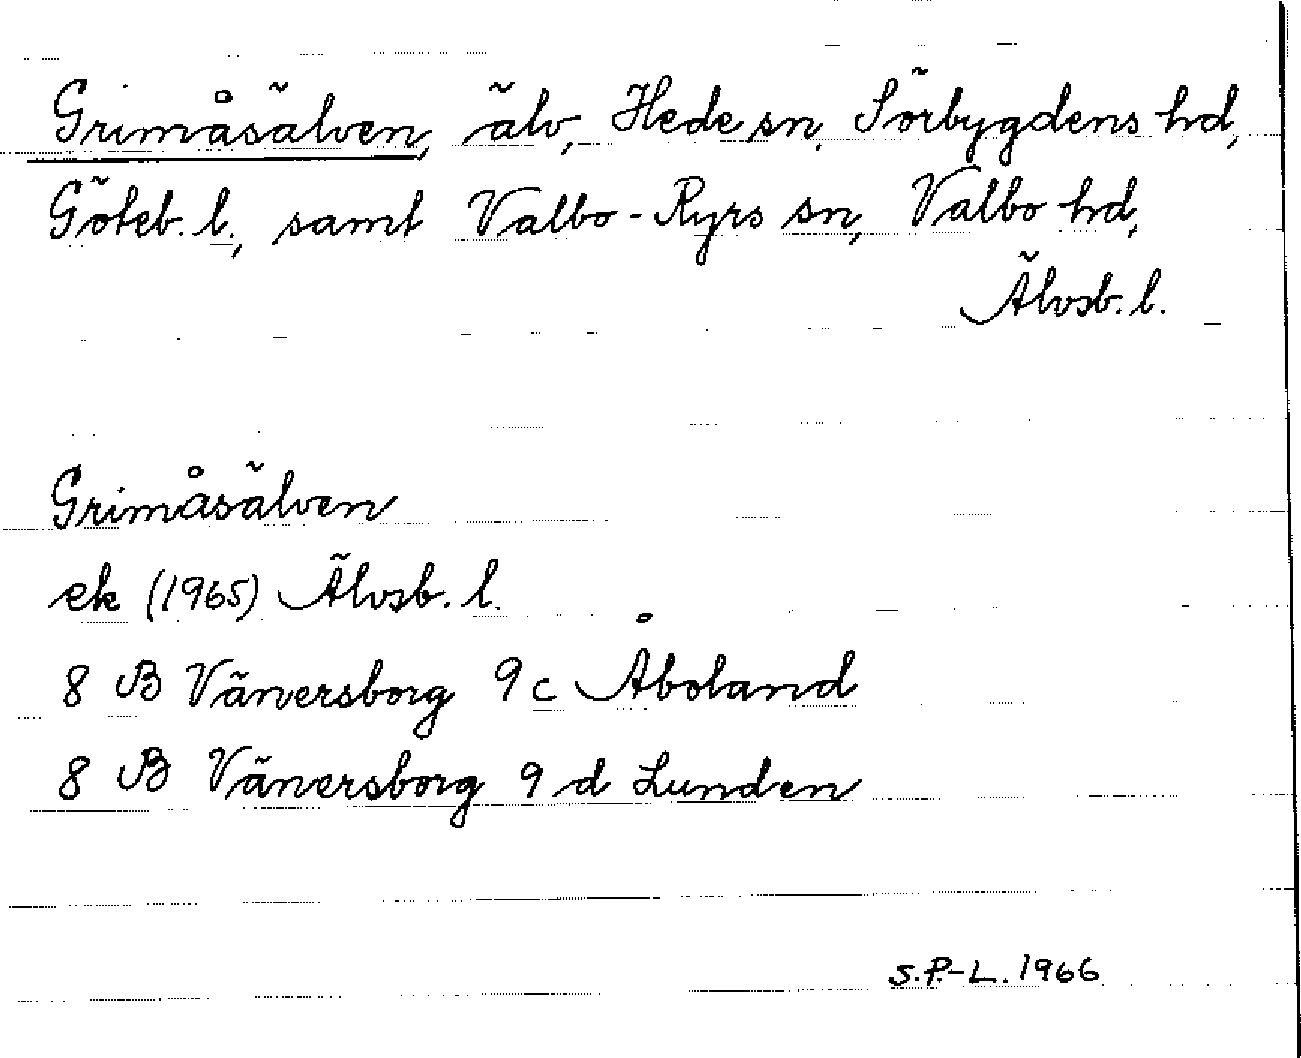 Grimåsälven, älv, Hede sn, Sörbygdens hd,
Göteb. l., samt Valbo-Ryrs sn, Valbo hd,
Älvsb. l.
Grimåsälven
ek (1965) Älvsb. l.
8 B Vänersborg 9 c Åboland
8 B Vänersborg 9 d Lunden
S.P.-L. 1966